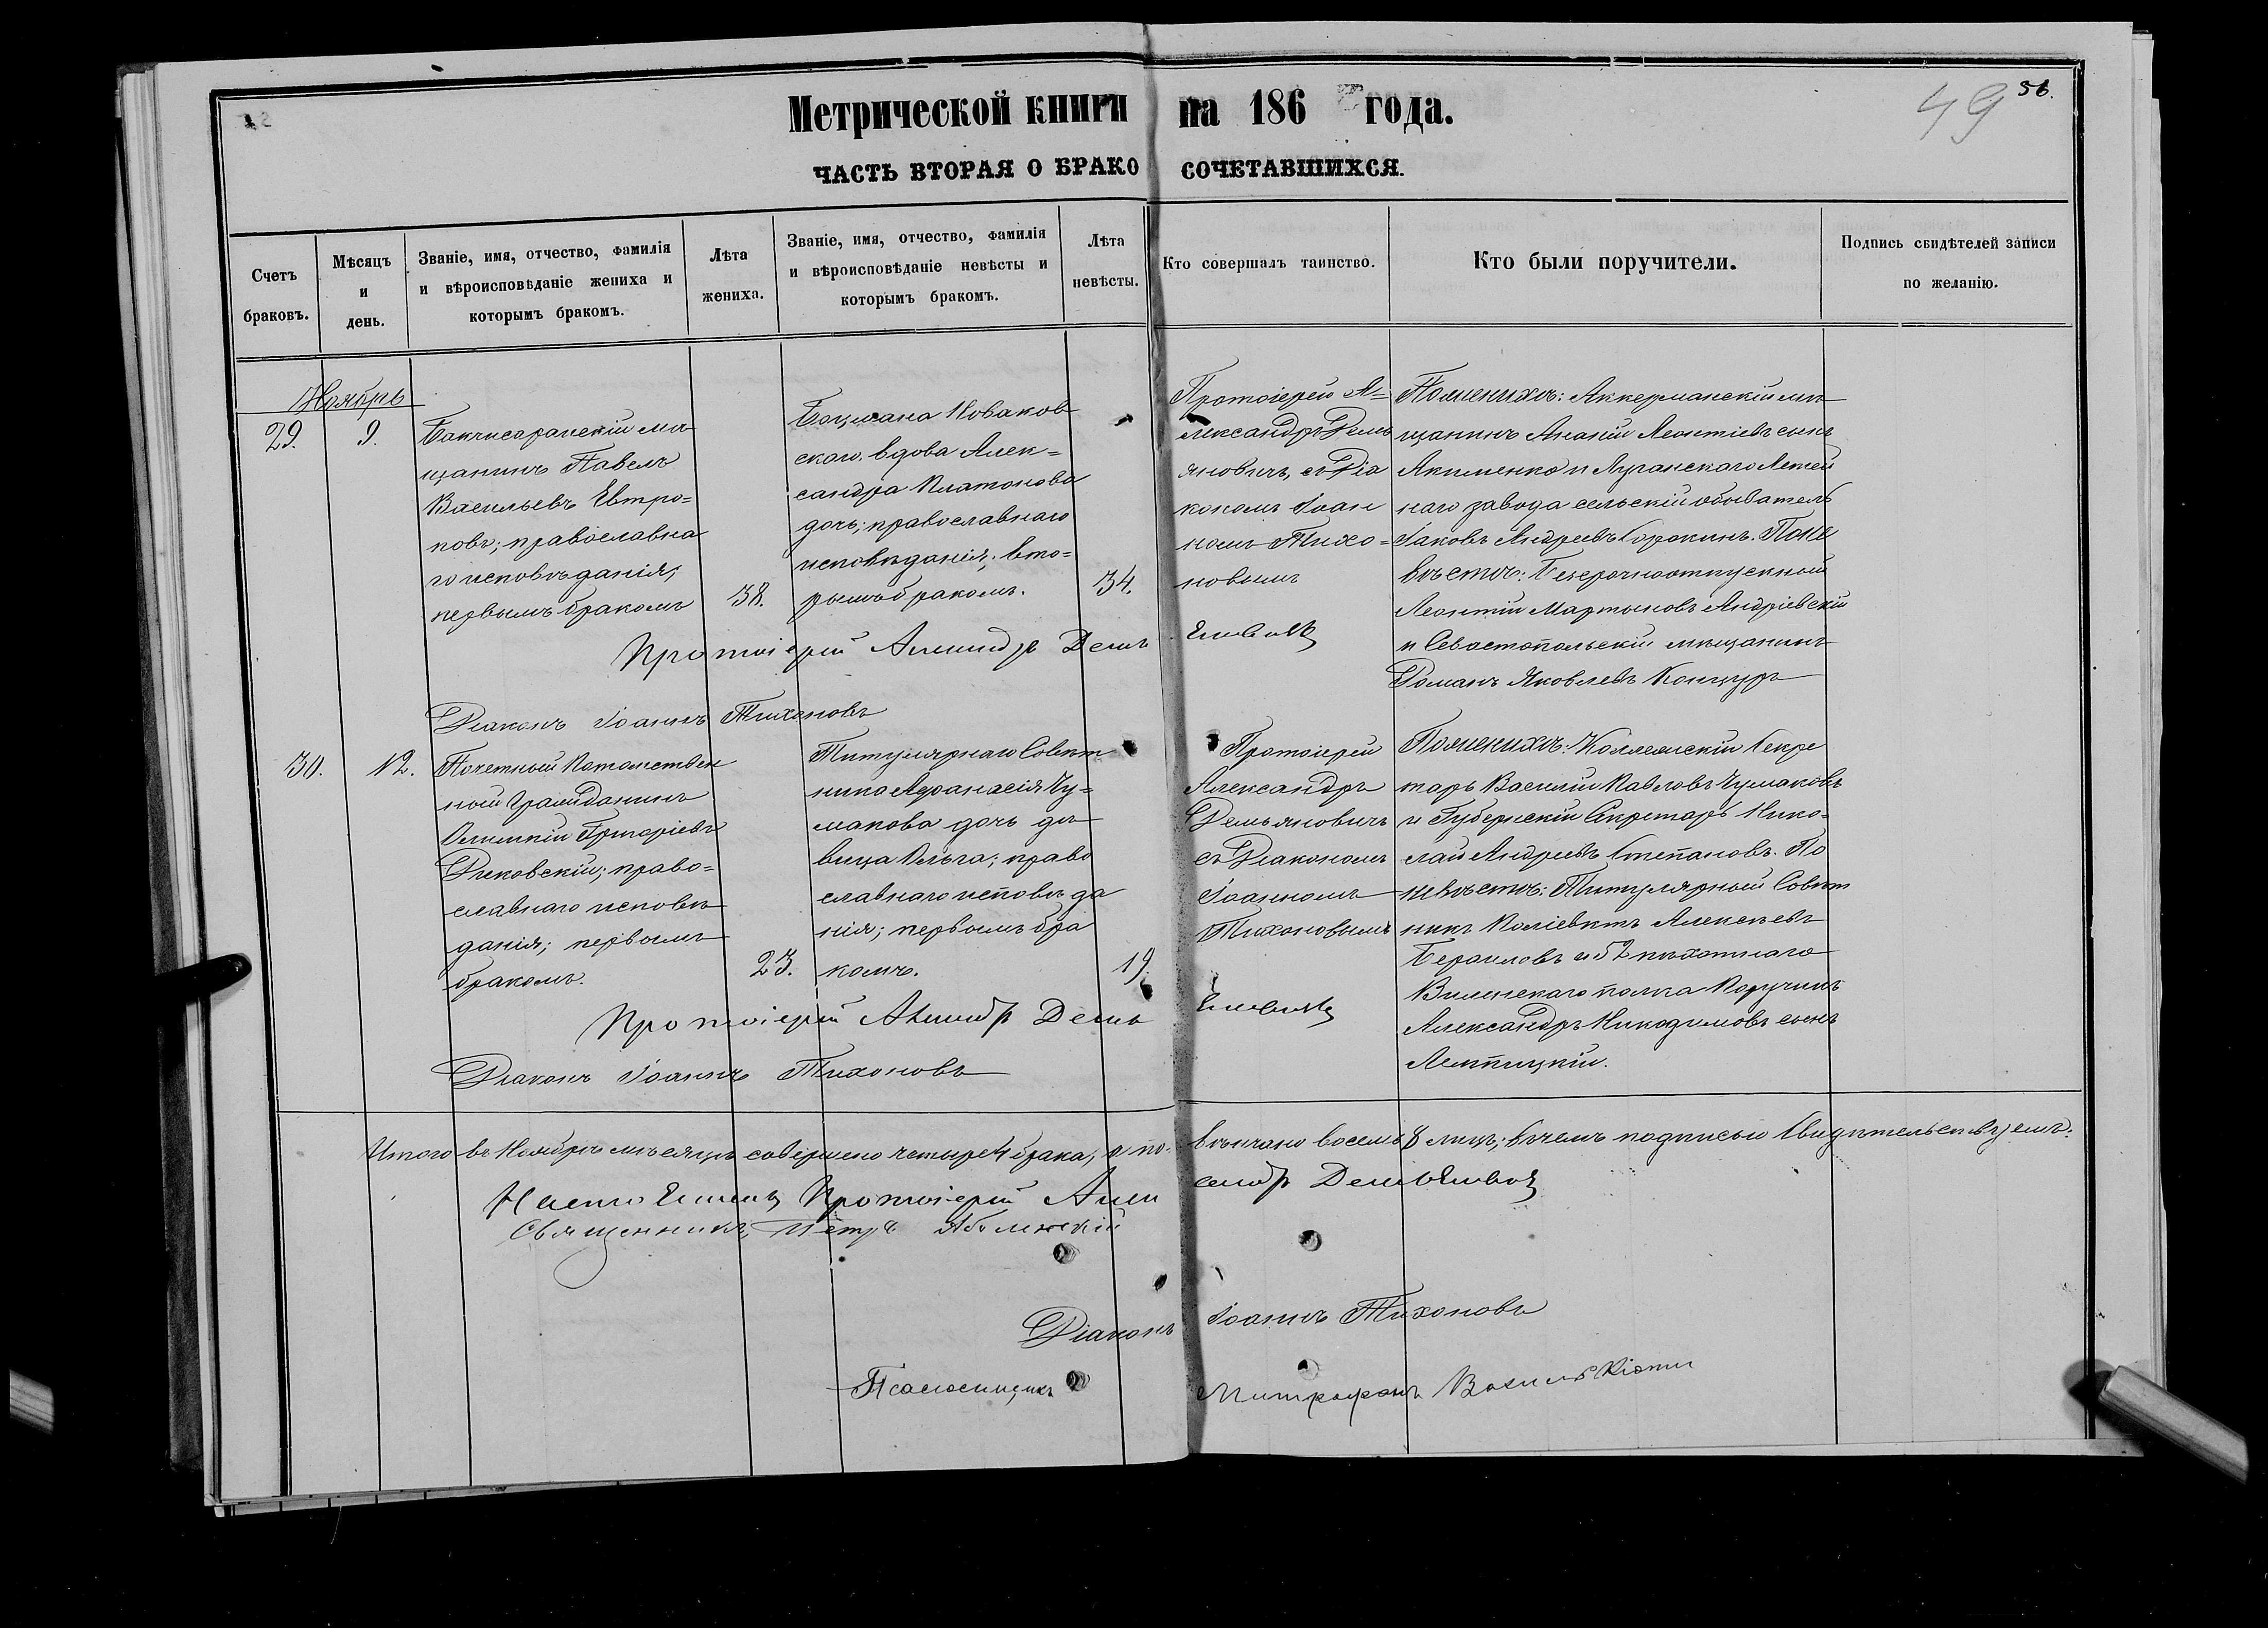 Метрической книги на 186 года.
49 56.
ЧАСТЬ ВТОРАЯ О БРАКО СОЧЕТАВШИХСЯ.
Счетъ
браковъ.
Мѣсяцъ
и
день.
Званіе, имя, отчество, фамилія
и вѣроисповѣданіе жениха и
которымъ бракомъ.
Лѣта
жениха.
Званіе, имя, отчество, фамилія
и вѣроисповѣданіе невѣсты и
которымъ бракомъ.
Лѣта
невѣсты.
Кто совершалъ таинство.
Кто были поручители.
Подпись свидѣтелей записи
по желанію.
Ноябрь
29.
9.
Бакчисарайскій мѣ
щанинъ Павелъ
Васильевъ Евтро=
повъ; православна
го исповѣданія;
первымъ бракомъ
38.
Боцмана Новаков
скаго вдова Алек=
сандра Платонова
дочь; православнаго
исповѣданія; вто=
рымъ бракомъ.
34.
Протоіерей А=
лександръ Демь
яновичъ, съ Діа
кономъ Іоан
номъ Тихо=
новымъ
По женихѣ: Аккерманскій мѣ
щанинъ Ананій Леонтіевъ сынъ
Акименко и Луганскаго Летей
наго завода сельскій обыватель
Іаковъ Андреевъ Сорокинъ. По не
вѣстѣ: Безсрочноотпускной
Леонтій Мартыновъ Андріевскій
и Севастопольскій мѣщанинъ
Романъ Яковлевъ Концуръ
Протоіерей Александръ Демьяновичъ
Діаконъ Іоаннъ Тихоновъ
30.
12.
Почетный Потомствен
ный Гражданинъ
Григоріевъ
православнаго исповѣ
данія; первымъ
бракомъ.
23.
Титулярнаго Совѣт
ника Афанасія Чу=
макова дочь дѣ
вица Ольга; право
славнаго исповѣда
нія; первымъ бра
комъ.
19.
Протоіерей
Александръ
Демьяновичъ
съ Діакономъ
Іоанномъ
Тихоновымъ
По женихѣ: Коллежскій Секре
тарь Василій Павловъ Чумаковъ
и Губернскій Секретарь Нико=
лай Андреевъ Степановъ. По
невѣстѣ: Титулярный Совѣт
никъ Алексѣевъ
и 52 пѣхотнаго
Виленскаго полка Поручикъ
Александръ Никодимовъ сынъ
Протоіерей Александръ Демьяновичъ
Діаконъ Іоаннъ Тихоновъ
Итого въ Ноябрѣ мѣсяцѣ совершено четыре 4 брака, а по= вѣнчано восемь 8 лицъ; въ чемъ подписью свидѣтельствуемъ:
Настоятель Протоіерей Александръ Демьяновичъ
Священникъ Петръ
Діаконъ Іоаннъ Тихоновъ
Псаломщикъ Митрофанъ